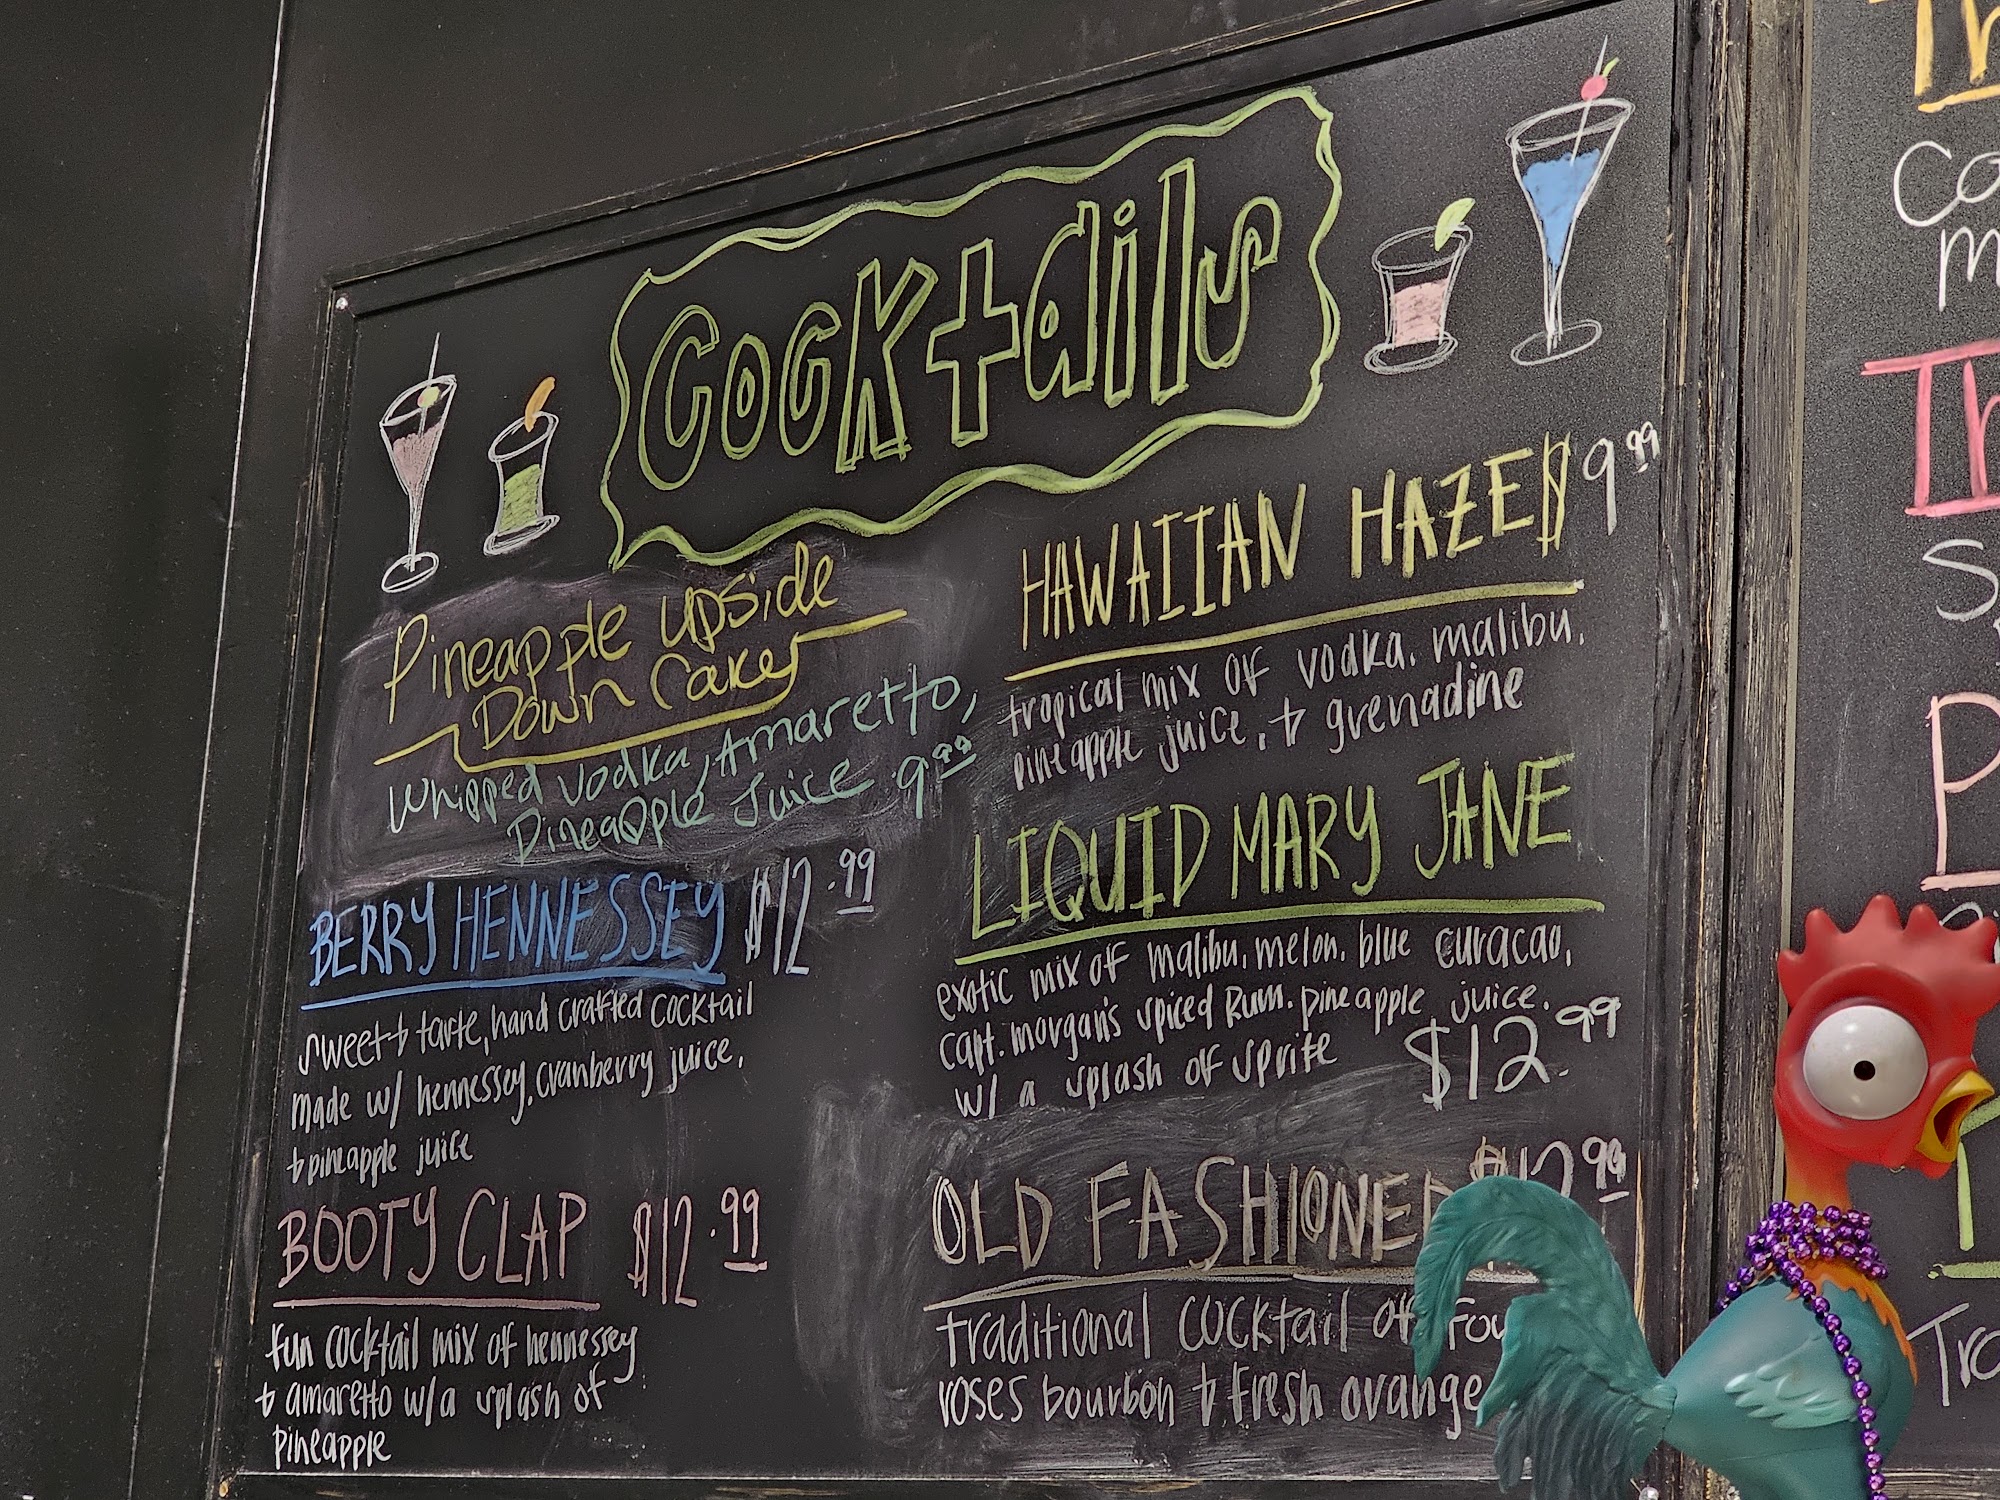 Cocktails
Pineapple upside
Down Cake
Whipped vodka, Amaretto,
Pineapple Juice 9.99
BERRY HENNESSEY $12.99
sweet & tarte, hand crafted cocktail
made w/ hennessey, cranberry juice,
& pineapple juice
BOOTY CLAP $12.99
fun cocktail mix of hennessey
& amaretto w/ a splash of
pineapple
HAWAIIAN HAZE $9.99
tropical mix of vodka, malibu,
pineapple juice, & grenadine
LIQUID MARY JANE
exotic mix of malibu, melon, blue curacao,
capt. morgan's spiced Rum, pineapple juice,
w/ a splash of sprite $12.99
OLD FASHIONED $12.99
traditional cocktail of
roses bourbon & fresh orange